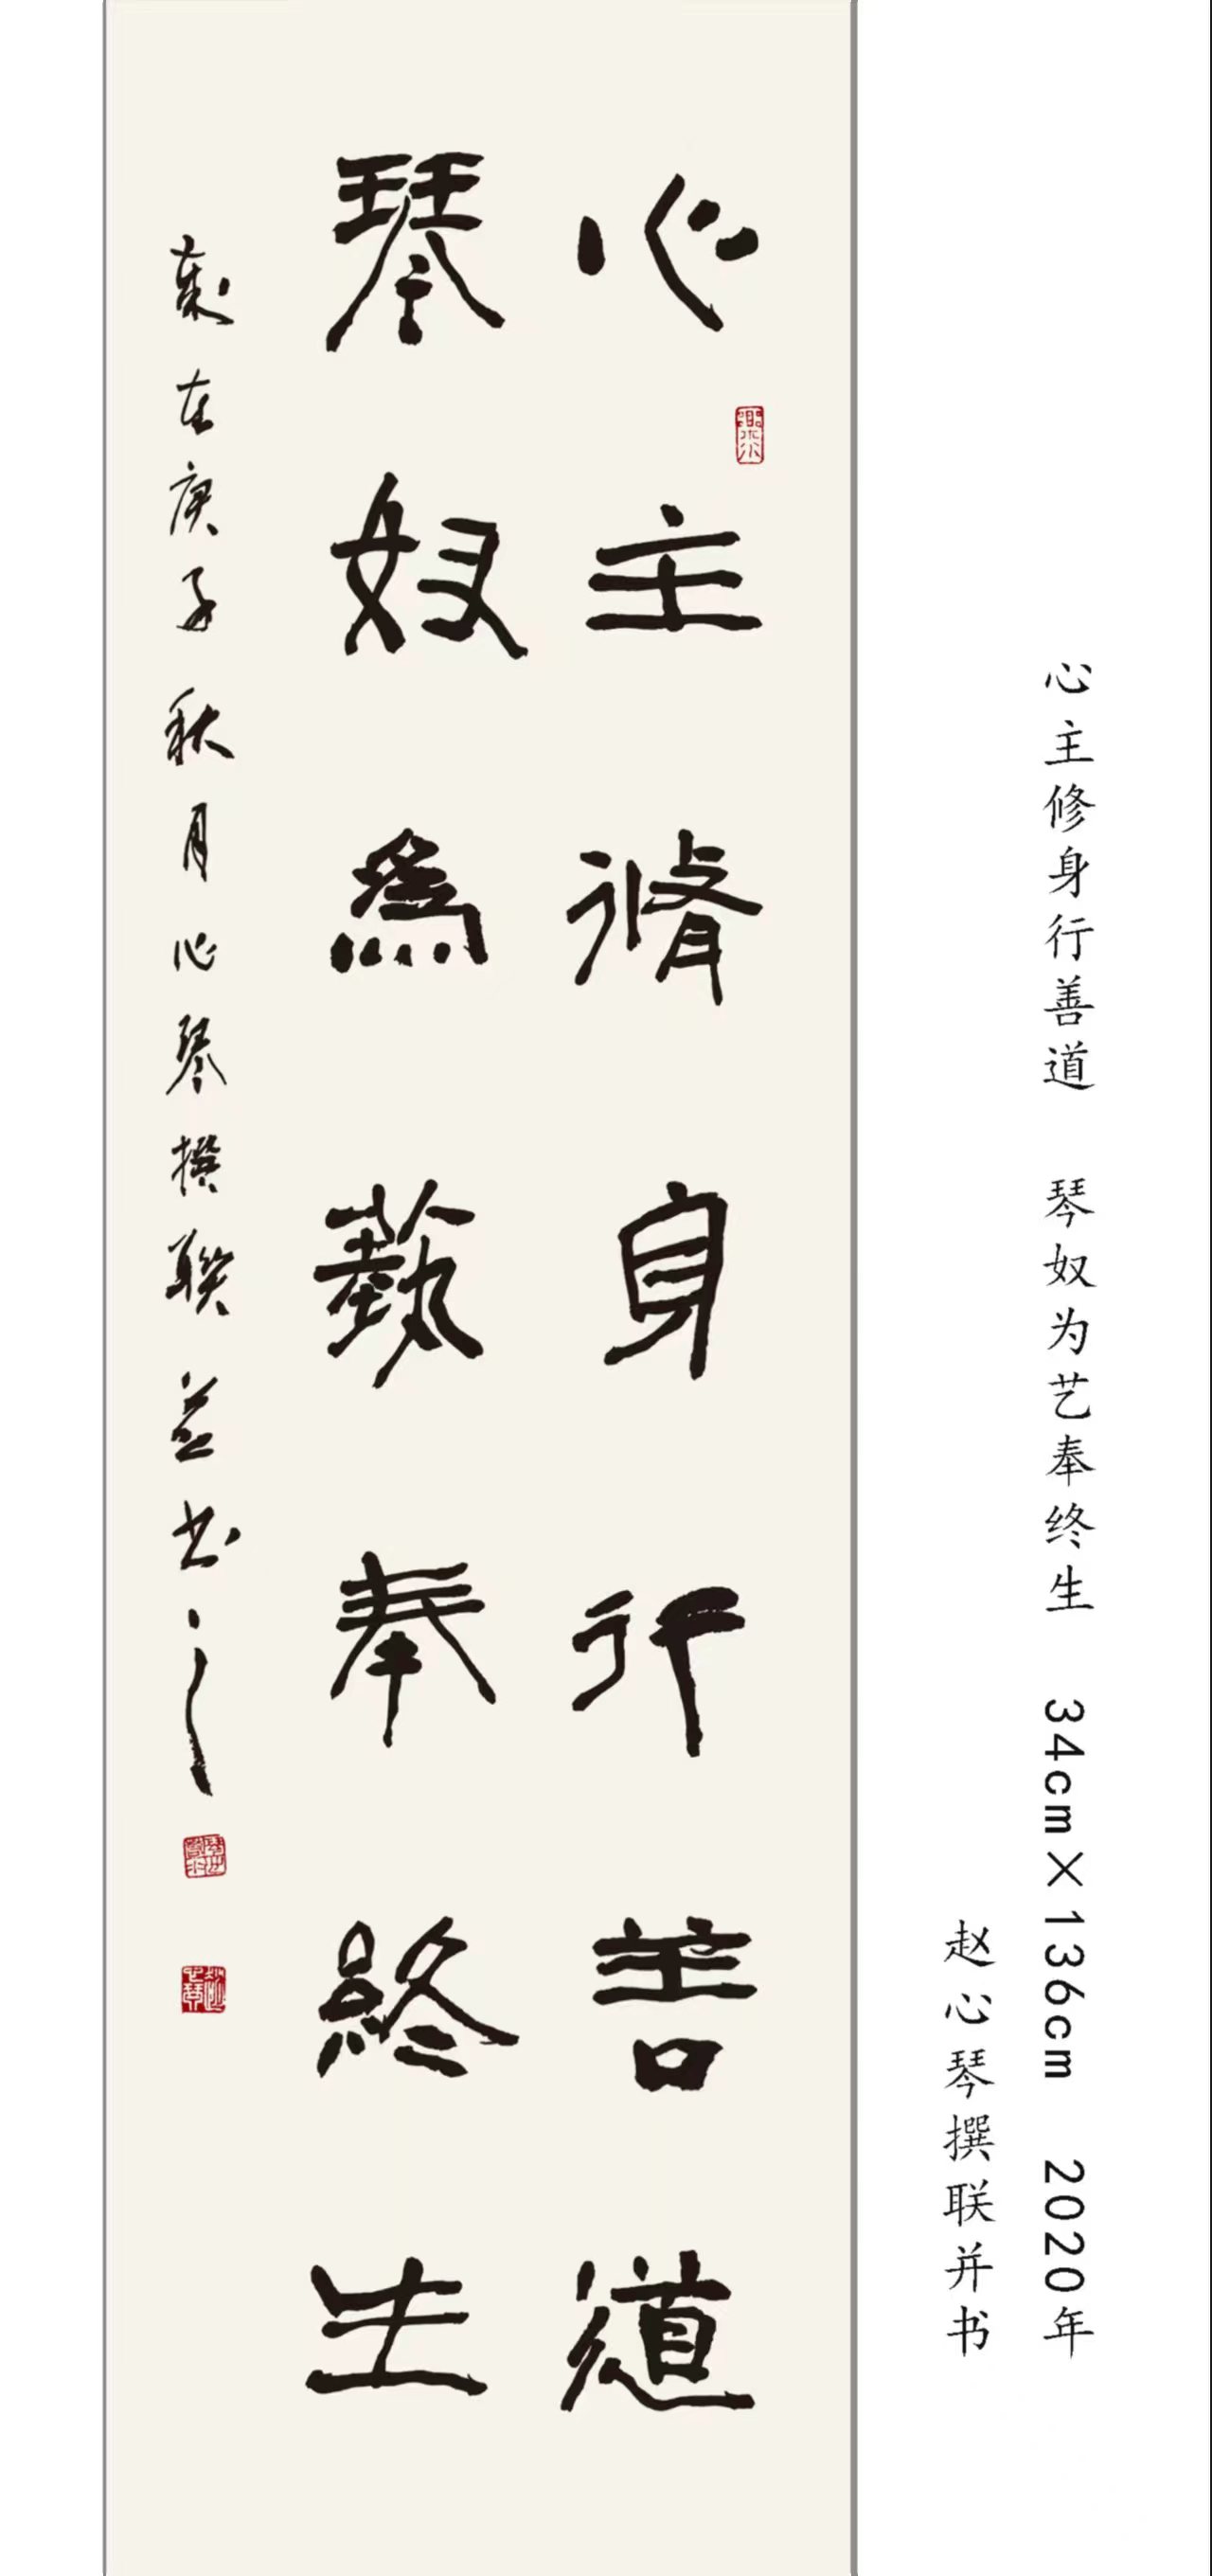 心主修身行善道 琴奴为艺奉终生 34cm×136cm 2020年
赵心琴撰联并书
心主脩身行善道
琴奴為蓺奉終生
歲在庚子秋月心琴撰聯並书之